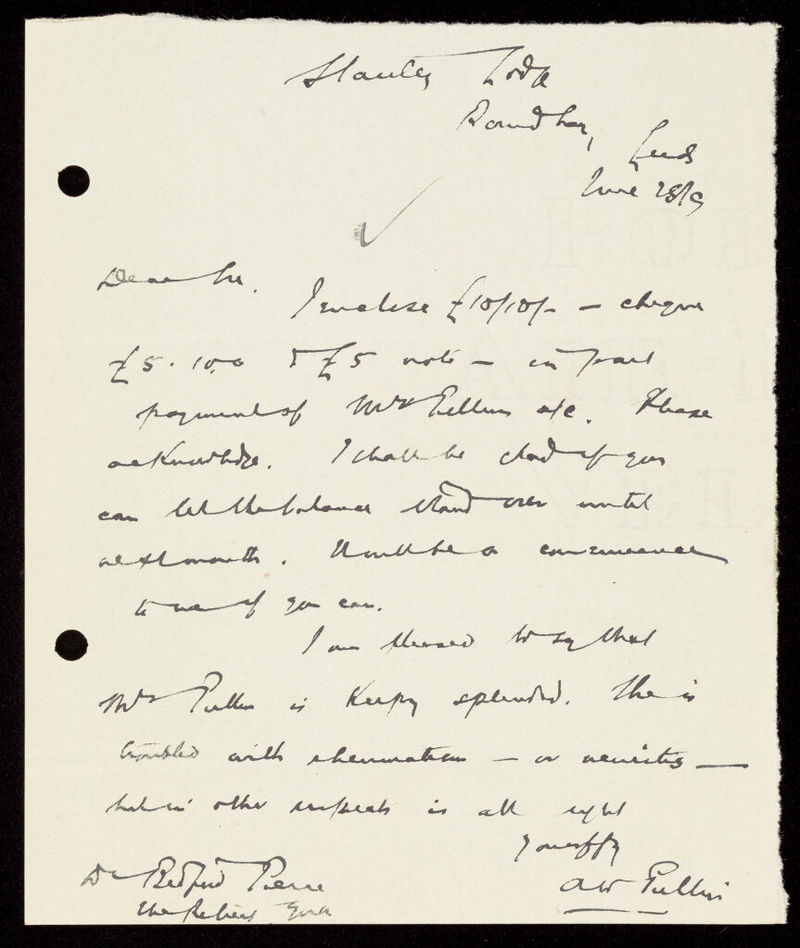 Stanley Lodge
Roundhay,
Leeds
June 28/9
Dear Sir.
I enclose £10/10/- – cheque
£5.10.0 & £5 note – in part
payment of Mrs Pullin's a/c. Please
acknowledge. I shall be glad if you
can let the balance stand over until
next month. It will be a convenience
to me if you can.
I am pleased to say that
Mrs Pullin is keeping splendid. She is
troubled with rheumatism – or neuritis –
but in other respects is all right
Yours ffy
A W Pullin
Dr Bedford Pierce
The Retreat York